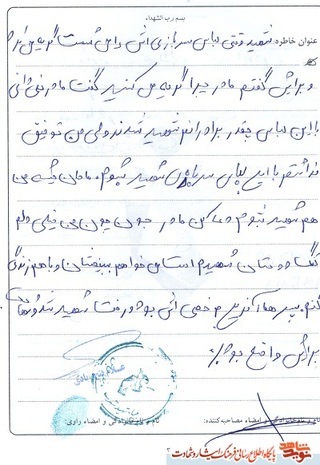 بسم رب الشهداء
عنوان خاطره: شهید وقتی لباس سربازی اش را می شست گریه می کرد
و برایش گفتم مادر چرا گریه می کنید گفت مادر نمی دانی
با این لباس چقدر برادرانم شهید شدند ولی من توفیق
نداشتم با این لباس سربازی شهید شوم. مامان میشه من
هم شهید شوم دعا کن مادر چون من خیلی دلم
تنگ دوستان شهیدم است می خواهم ببینمشان و با هم زندگی
کنم پسر ما آخرین مرخصی اش بود رفت شهید شد
برایش واقع بود.
نام و نام خانوادگی و امضاء مصاحبه کننده:
نام و نام خانوادگی و امضاء راوی:
نوید شاهد
پایگاه اطلاع رسانی فرهنگ ایثار و شهادت